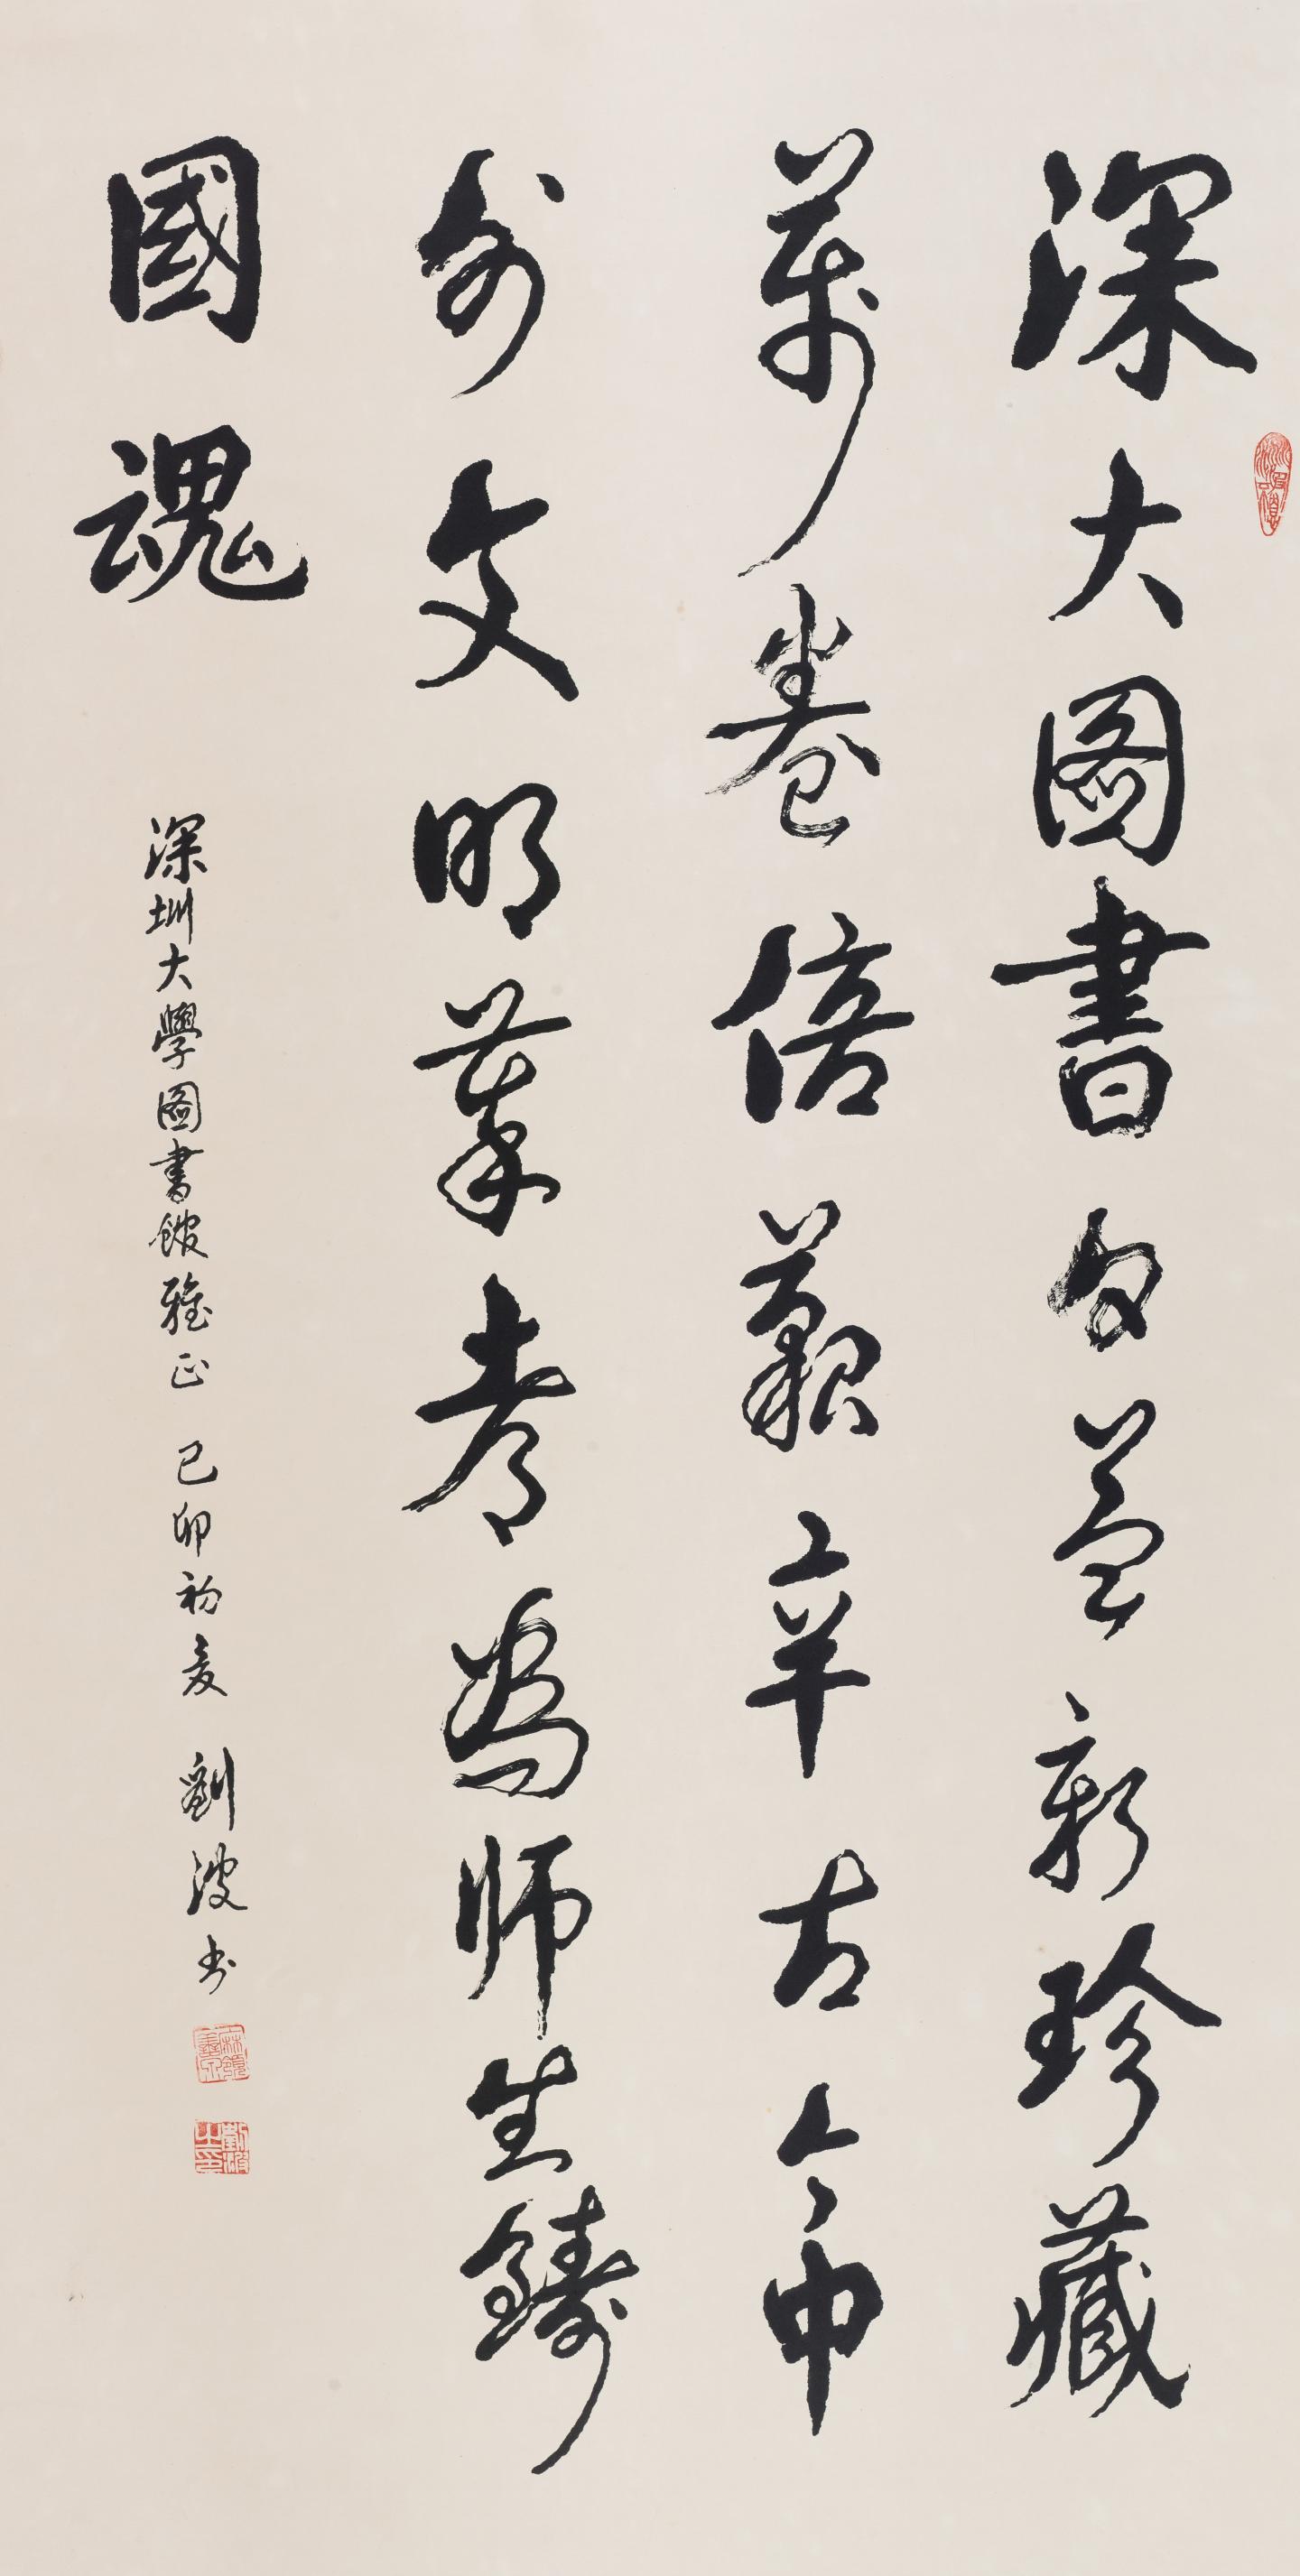 深大圖書日益新珍藏
萬卷倍艱辛古今中
外文明萃考為師生鑄
國魂
深圳大學圖書館雅正 己卯初夏 劉波书
劉波之印